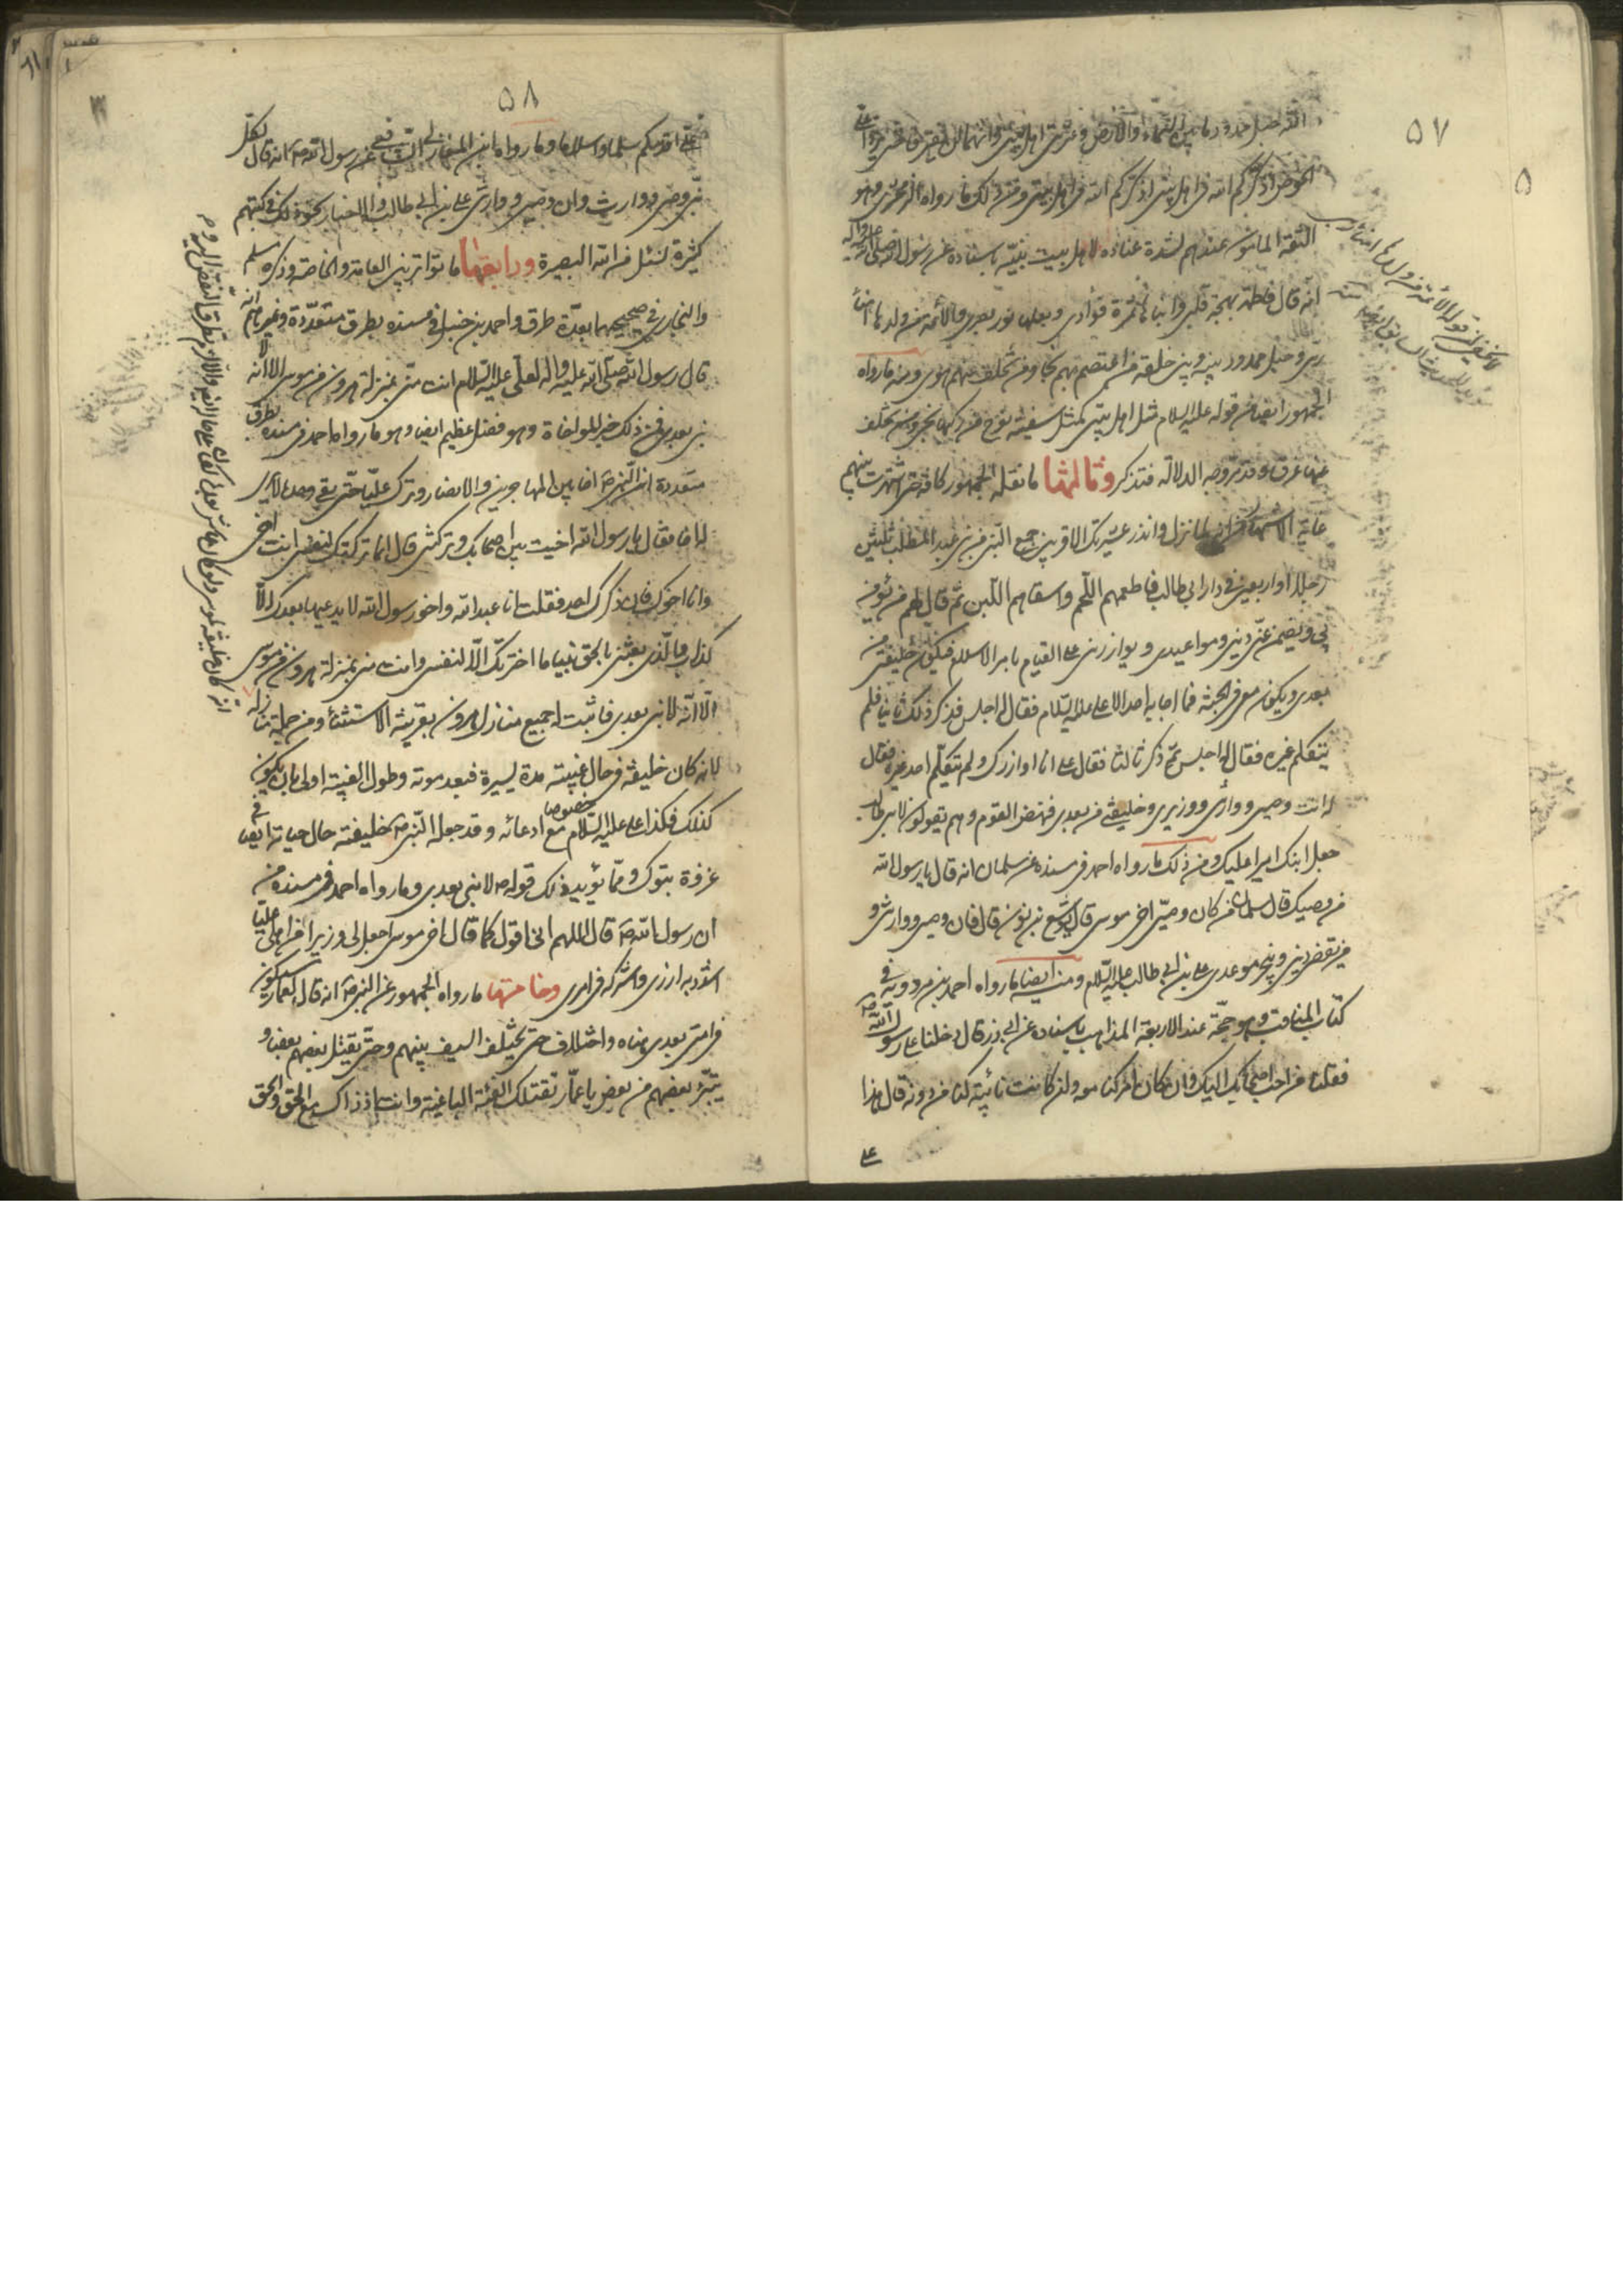 ٥٧
الله حبل ممدود ما بين السماء والارض وعترتي اهل بيتي وانهما لن يفترقا حتى يردا علي
الحوض اذكركم الله في اهل بيتي اذكركم الله في اهل بيتي ومن ذلك ما رواه الزمخشري وهو
الثقة المامون عندهم لشدة عناده لاهل بيت نبيه باسناده عن رسول الله صلى الله عليه واله
انه قال فاطمة بهجة قلبي وابناها ثمرة فؤادي وبعلها نور بصري والائمة من ولدها امناء
ربي وحبل ممدود بينه وبين خلقه من اعتصم بهم نجا ومن تخلف عنهم هوى ومنه ما رواه
الجمهور ايضا من قوله عليه السلام مثل اهل بيتي كمثل سفينة نوح من ركبها نجى ومن تخلف
عنها غرق وقد مر وجه الدلالة فتذكر وثالثها ما نقله الجمهور كافة حتى اشتهرت بينهم
غاية الاشتهار انه لما نزل وانذر عشيرتك الاقربين جمع النبي من بني عبد المطلب ثلثين
رجلا او اربعين في دار ابي طالب فاطعمهم اللحم واسقاهم اللبن ثم قال لهم من يؤمن
بي ويضمن عني ديني ومواعيدي ويوازرني على القيام بامر الاسلام فيكون خليفتي من
بعدي ويكون معي في الجنة فما اجابه احد الا علي عليه السلام فقال له اجلس فذكر ذلك ثانيا فلم
يتكلم غيره فقال له اجلس ثم ذكر ثالثا فقال علي انا اوازرك ولم يتكلم احد غيره فقال
له انت وصيي ووارثي ووزيري وخليفتي من بعدي فنهض القوم وهم يقولون لابي طالب
جعل ابنك اميرا عليك ومن ذلك ما رواه احمد في مسنده عن سلمان انه قال يا رسول الله
من وصيك قال يا سلمان من كان وصي اخي موسى قال يوشع بن نون قال فان وصيي ووارثي و
من يقضي ديني وينجز موعدي علي بن ابي طالب عليه السلام ومنه ايضا ما رواه احمد بن مردويه في
كتاب المناقب وهو حجة عند الاربعة المذاهب باسناده عن ابي ذر قال دخلنا على رسول الله ص
فقلنا من احب اصحابك اليك فان كان امر كنا معه ولئن كانت نائبة كنا من دونه قال هذا
علي
٥٨
علي اقدمكم سلما واسلاما وما رواه ابن المغازلي الشافعي عن رسول الله ص انه قال لكل
نبي وصي ووارث وان وصيي ووارثي علي بن ابي طالب والاخبار بنحو ذلك في كتبهم
كثيرة نسئل من الله البصيرة ورابعها ما تواتر بين العامة والخاصة وذكره مسلم
والبخاري في صحيحيهما بعدة طرق واحمد بن حنبل في مسنده بطرق متعددة وغيرهم انه
قال رسول الله صلى الله عليه واله لعلي عليه السلام انت مني بمنزلة هرون من موسى الا انه لا
نبي بعدي فمن ذلك خبر المواخاة وهو فضل عظيم ايضا وهو ما رواه احمد في مسنده بطرق
متعددة ان النبي ص اخا بين المهاجرين والانصار وترك عليا حتى بقي وحده لا يرى
له اخا فقال يا رسول الله اخيت بين اصحابك وتركتني قال انما تركتك لنفسي انت اخي
وانا اخوك فان ذكرك احد فقلت انا عبد الله واخو رسول الله لا يدعيها بعدك الا
كذاب والذي بعثني بالحق نبيا ما اخترتك الا لنفسي وانت مني بمنزلة هرون من موسى
الا انه لا نبي بعدي فاثبت له جميع منازل هرون بقرينة الاستثناء ومن جملة منازله
لانه كان خليفة في حال غيبته مدة يسيرة فبعد موته وطول الغيبة اولى بان يكون
كذلك فكذا علي عليه السلام خصوصا مع ادعائه وقد جعله النبي ص خليفته حال حياته ايضا في
غزوة تبوك ومما يؤيد ذلك قوله ص لا نبي بعدي وما رواه احمد في مسنده من
ان رسول الله ص قال اللهم اني اقول كما قال اخي موسى اجعل لي وزيرا من اهلي عليا
اشدد به ازري واشركه في امري وخامسها ما رواه الجمهور عن النبي ص انه قال لعمار سيكون
في امتي بعدي هناه واختلاف حتى يختلف السيف بينهم وحتى يقتل بعضهم بعضا و
يتبرء بعضهم من بعض يا عمار تقتلك الفئة الباغية وانت اذ ذاك مع الحق والحق